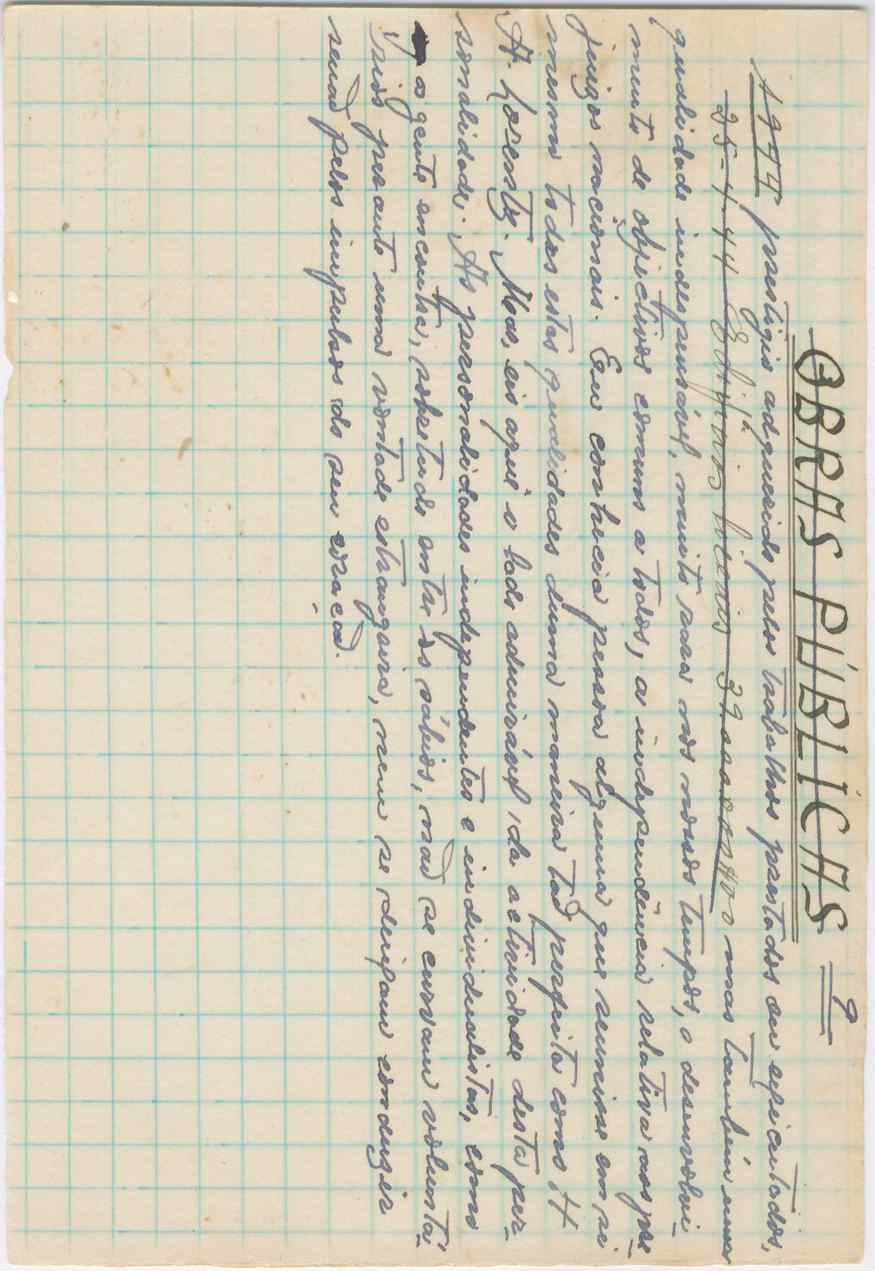 9
OBRAS PÚBLICAS
1944 prestigio adquerido pelos trabalhos prestados ou executados,
25-4-44 Edifícios liceais 37.000.000$00 mas também uma
qualidade indespensável, muito rara nos nossos tempos, o desenvolvi-
mento de objectivos comuns a todos, a independência relativa aos pre
juizos nacionais. Eu conhecia pessoa alguma que reunisse em si
mesmo todas estas qualidades duma maneira tão perfeita como H
A. Lorentz. Mas, eis aqui o lado admirável da actividade desta per-
sonalidade. As personalidades independentes e individualistas, como
a gente encontra, sobretudo entre os sábios, não se curvam voluntá-
rios perante uma vontade estrangeira, nem se deixam conduzir
senão pelos impulsos do seu coração.